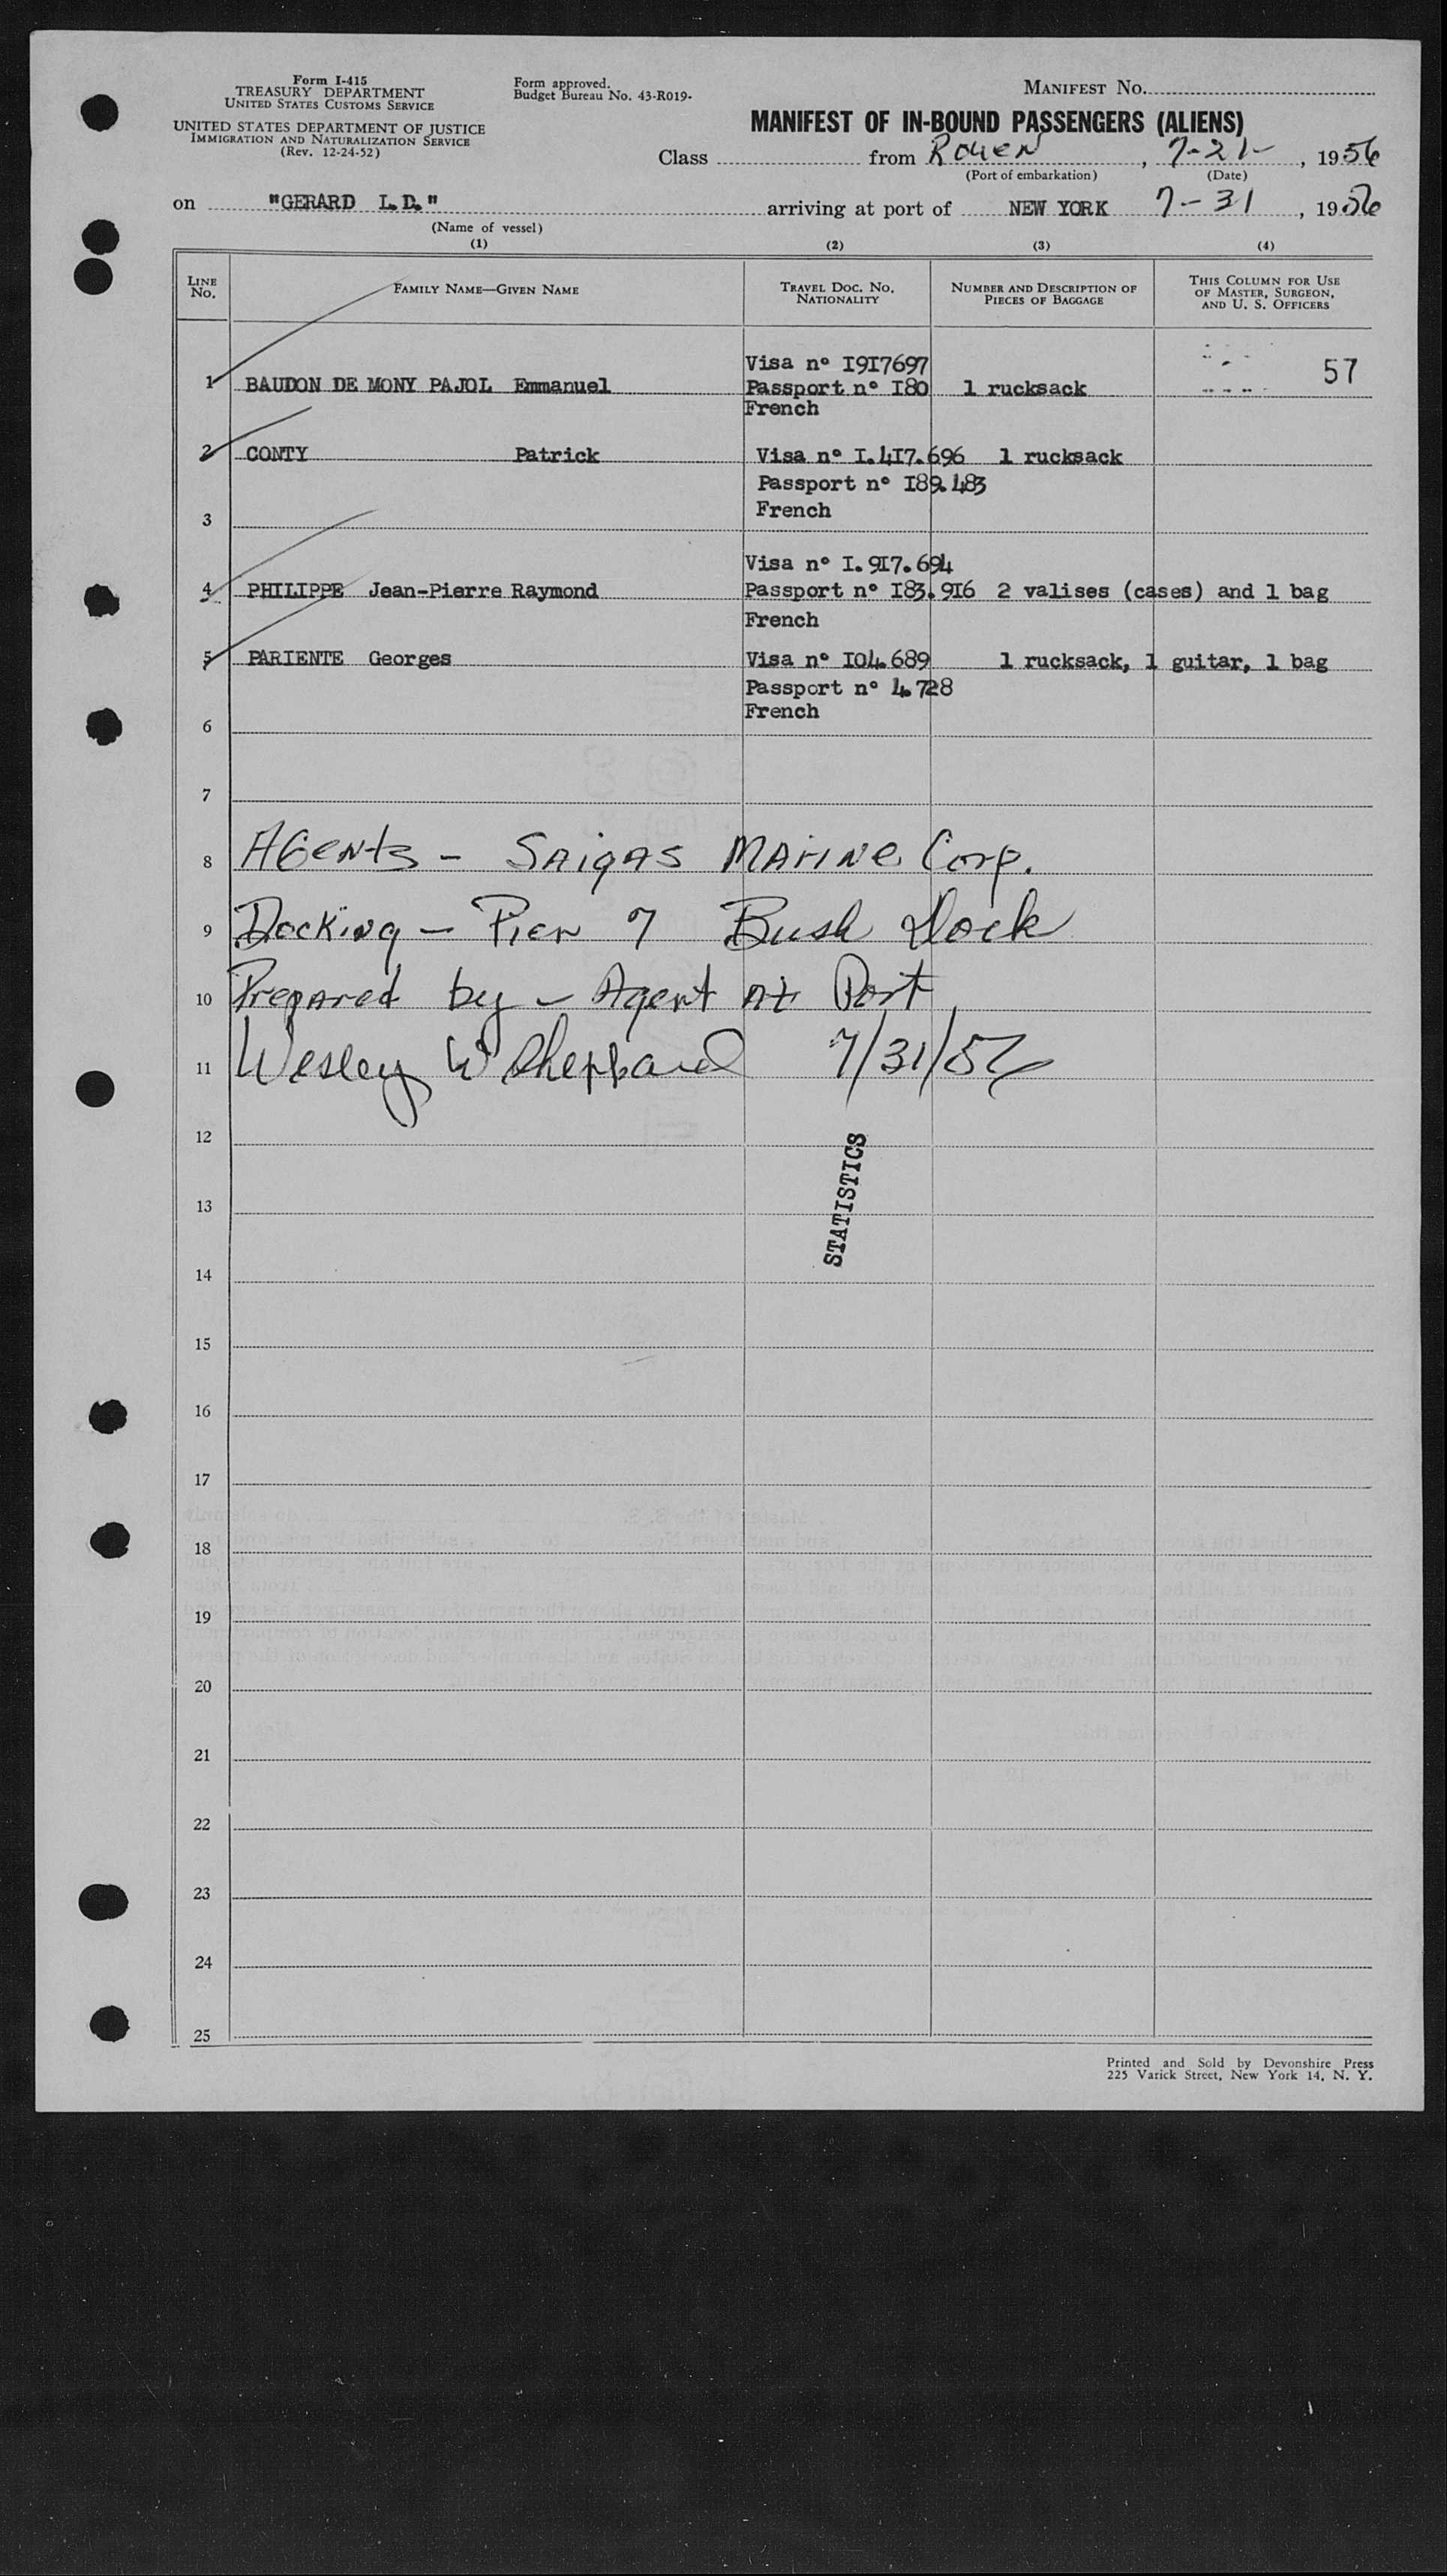 Form I-415
TREASURY DEPARTMENT
UNITED STATES CUSTOMS SERVICE
UNITED STATES DEPARTMENT OF JUSTICE
IMMIGRATION AND NATURALIZATION SERVICE
(Rev. 12-24-52)
Form approved.
Budget Bureau No. 43-R019-
MANIFEST No.
MANIFEST OF IN-BOUND PASSENGERS (ALIENS)
Class from Rouen, 7-21-, 1956
(Port of embarkation) (Date)
on "GERARD L.D." arriving at port of NEW YORK 7-31, 1956
(Name of vessel)
(1) (2) (3) (4)
LINE No. FAMILY NAME—GIVEN NAME TRAVEL DOC. NO. NATIONALITY NUMBER AND DESCRIPTION OF PIECES OF BAGGAGE THIS COLUMN FOR USE OF MASTER, SURGEON, AND U. S. OFFICERS
Visa n° I9I7697 57
1 BAUDON DE MONY PAJOL Emmanuel Passport n° I80 1 rucksack
French
2 CONTY Patrick Visa n° I.4I7.696 1 rucksack
Passport n° I89.483
3 French
Visa n° I.9I7.694
4 PHILIPPE Jean-Pierre Raymond Passport n° I83.9I6 2 valises (cases) and 1 bag
French
5 PARIENTE Georges Visa n° I04.689 1 rucksack, 1 guitar, 1 bag
Passport n° 4.728
French
6
7
8 AGents - SAIGAS MARINE Corp.
9 Docking - Pier 7 Bush Dock
10 Prepared by - Agent At Port
11 Wesley W Sheppard 7/31/56
12
STATISTICS
13
14
15
16
17
18
19
20
21
22
23
24
25
Printed and Sold by Devonshire Press
225 Varick Street, New York 14, N. Y.